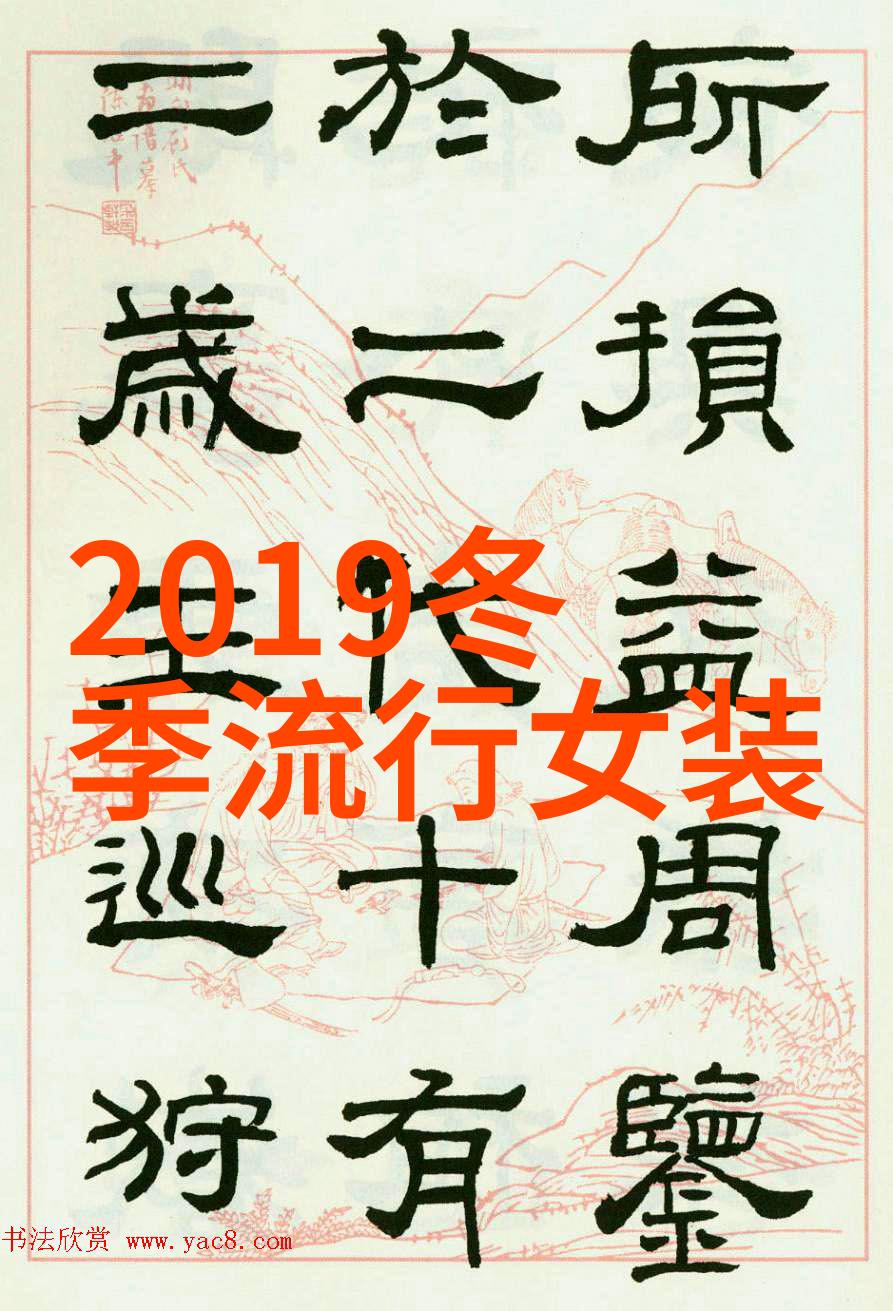 所損益周鑒
於二代十有
二歲王巡狩
2019冬
季流行女装
书法欣赏 www.yac8.com